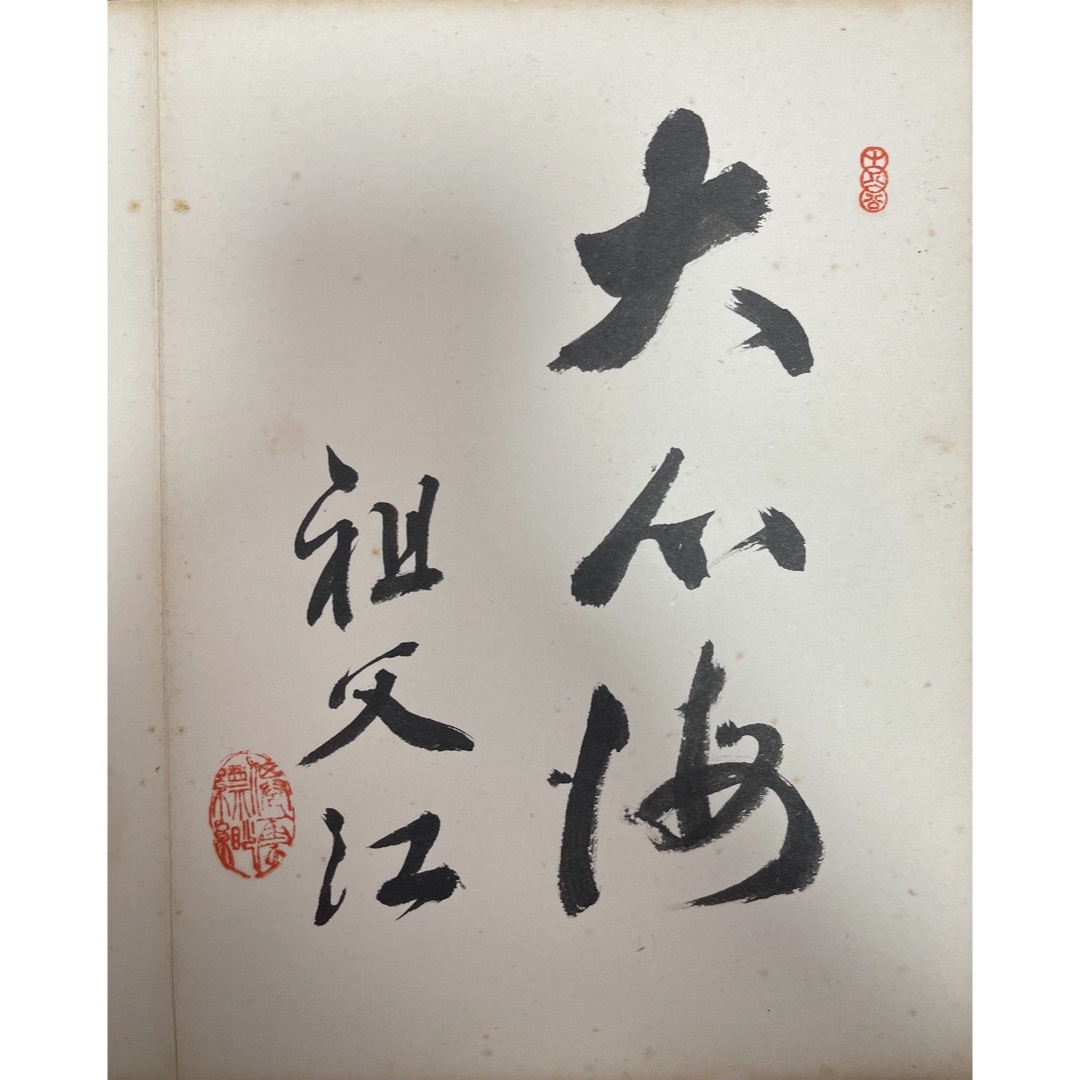 大心海
祖父江